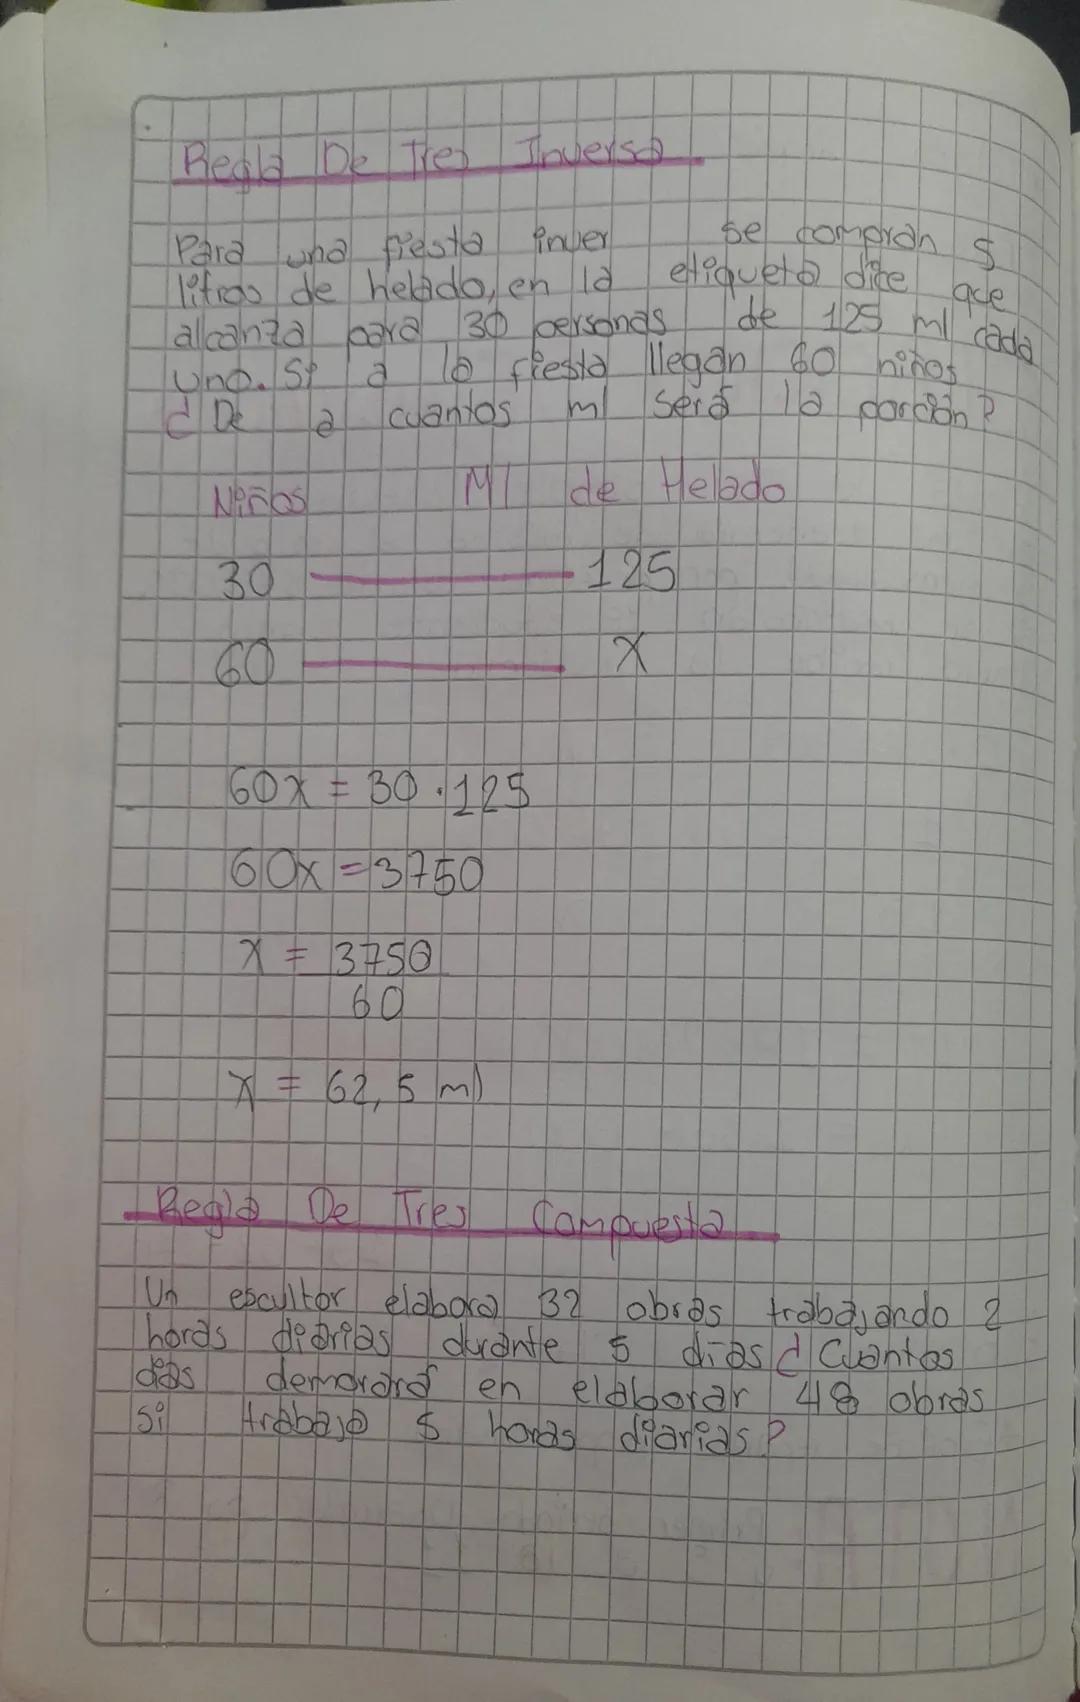 Regla De Tres Inversa
Para una fiesta inver se compran 5
litros de helado, en la etiqueta dice que
alcanza para 30 personas de 125 ml cada
uno. Si a la fiesta llegan 60 niños
¿ De a cuantos ml será la porción?
Niños Ml de Helado
30 125
60 x
60x = 30 . 125
60x = 3750
x = 3750
60
x = 62,5 ml
Regla De Tres Compuesta
Un escultor elabora 32 obras trabajando 2
horas diarias durante 5 días ¿ Cuantos
días demorará en elaborar 48 obras
si trabaja 5 horas diarias?